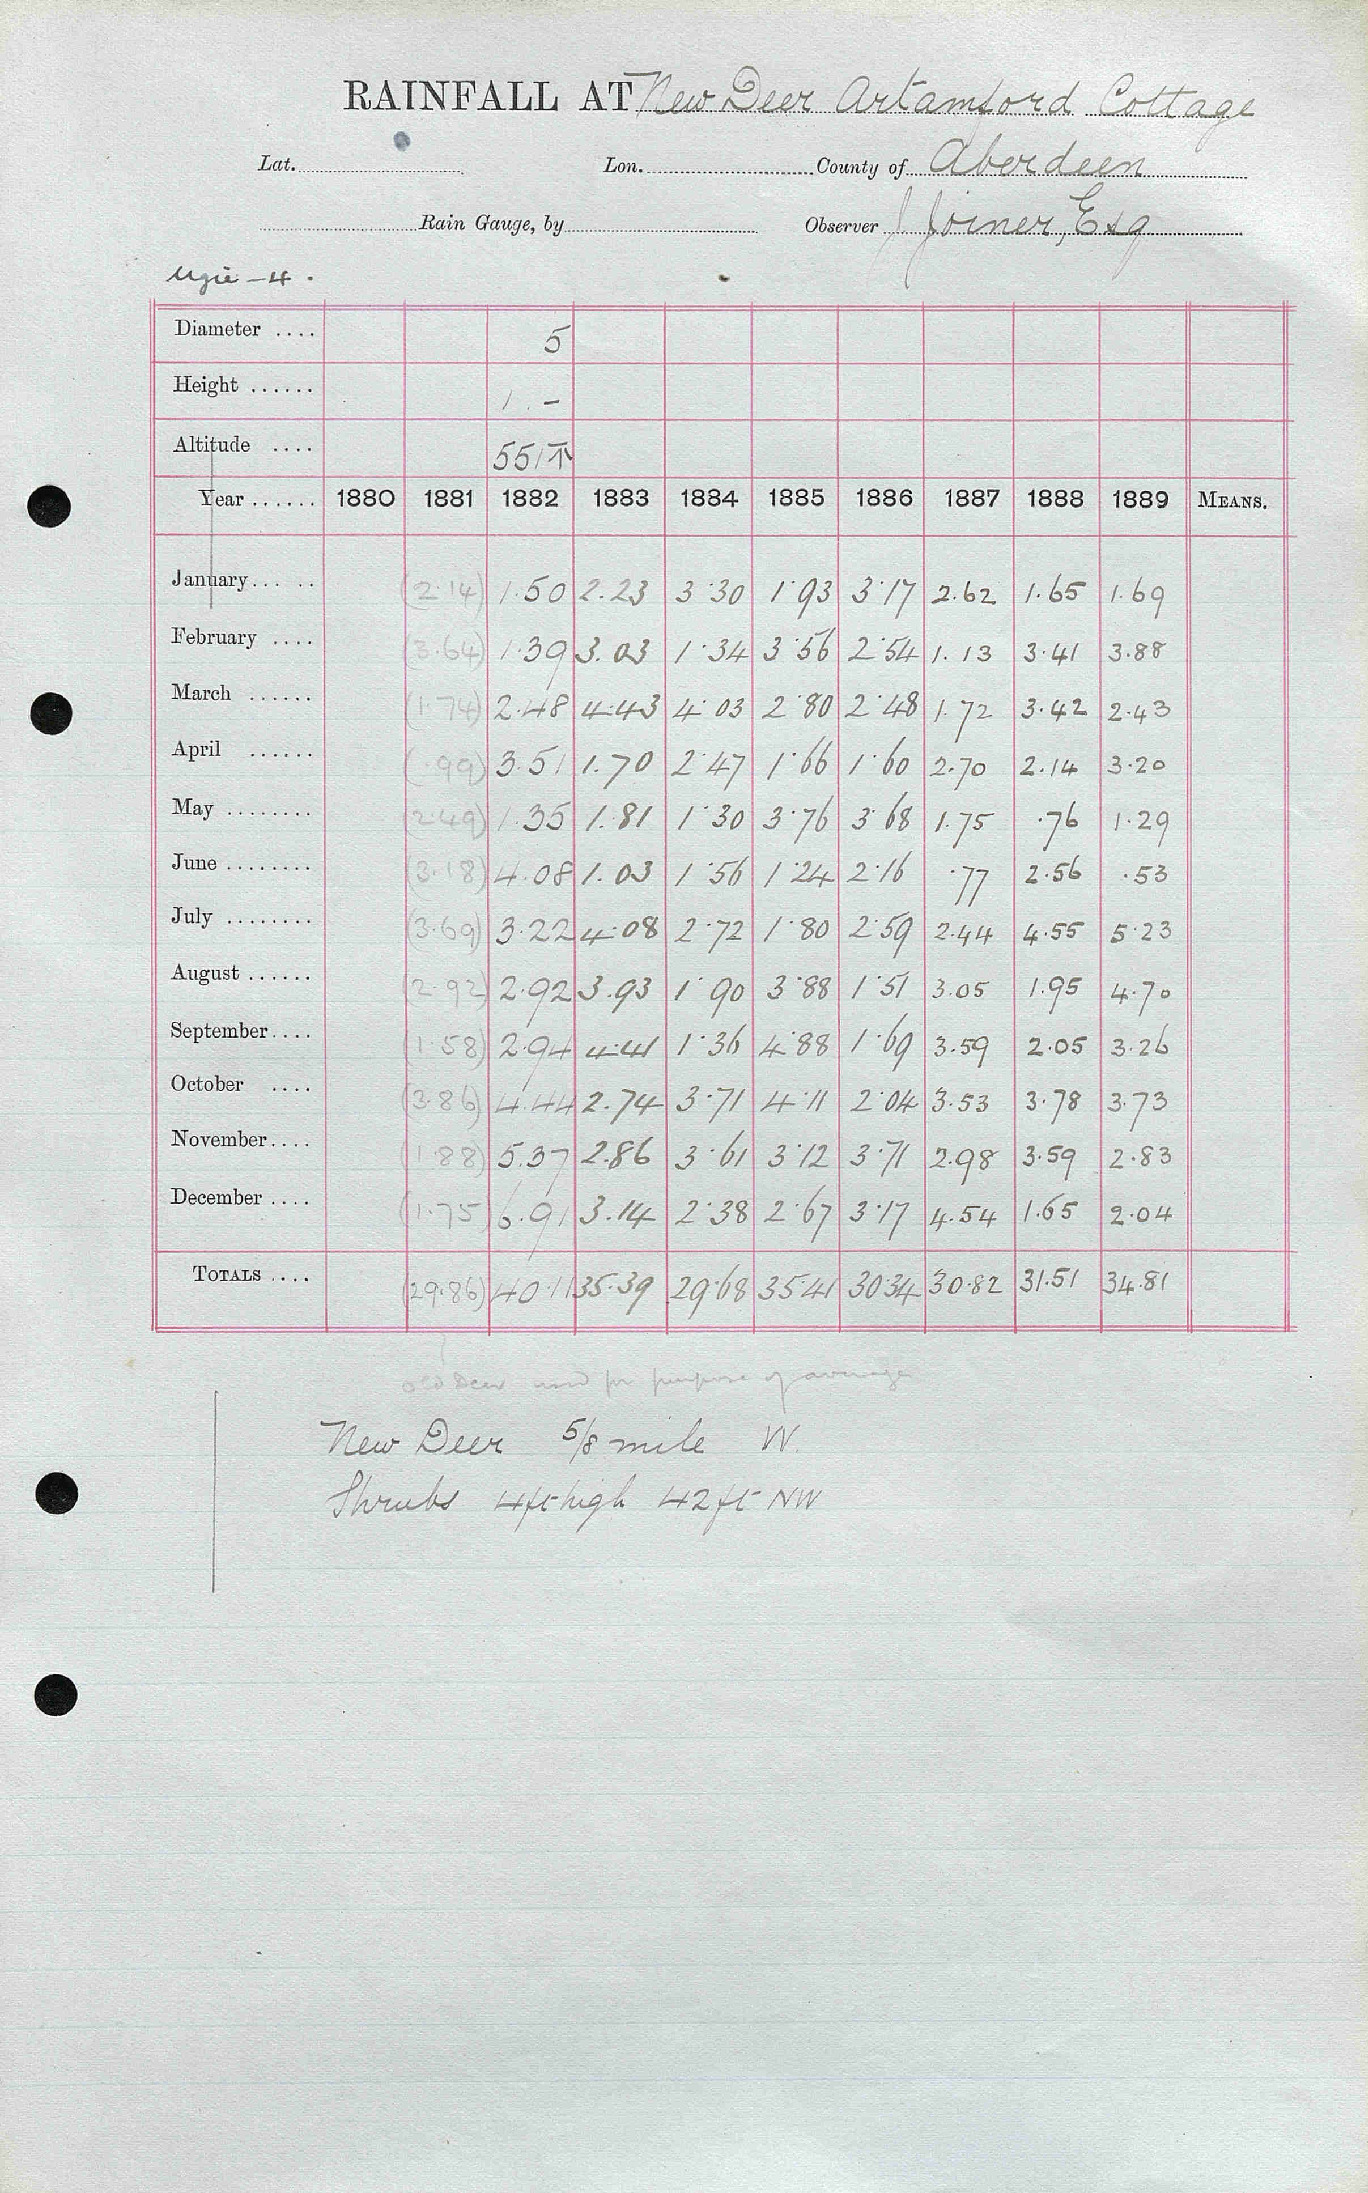 RAINFALL AT New Deer Artamford Cottage
Lat. Lon. County of Aberdeen
Rain Gauge, by Observer J Joiner, Esq
Ugie - 4.
Diameter .... 5
Height ...... 1 . -
Altitude .... 551 T
Year ...... 1880 1881 1882 1883 1884 1885 1886 1887 1888 1889 MEANS.
January... ... (2.14) 1.50 2.23 3.30 1.93 3.17 2.62 1.65 1.69
February .... (3.64) 1.39 3.03 1.34 3.56 2.54 1.13 3.41 3.88
March ...... (1.74) 2.48 4.43 4.03 2.80 2.48 1.72 3.42 2.43
April ...... (.99) 3.51 1.70 2.47 1.66 1.60 2.70 2.14 3.20
May ........ (2.49) 1.35 1.81 1.30 3.76 3.68 1.75 .76 1.29
June ........ (3.18) 4.08 1.03 1.56 1.24 2.16 .77 2.56 .53
July ........ (3.69) 3.22 4.08 2.72 1.80 2.59 2.44 4.55 5.23
August ...... (2.92) 2.92 3.93 1.90 3.88 1.51 3.05 1.95 4.70
September.... (1.58) 2.94 4.41 1.36 4.88 1.69 3.59 2.05 3.26
October .... (3.86) 4.44 2.74 3.71 4.11 2.04 3.53 3.78 3.73
November.... (1.88) 5.37 2.86 3.61 3.12 3.71 2.98 3.59 2.83
December .... (1.75) 6.91 3.14 2.38 2.67 3.17 4.54 1.65 2.04
TOTALS .... (29.86) 40.11 35.39 29.68 35.41 30.34 30.82 31.51 34.81
Old Deer used for purpose of average
New Deer 5/8 mile W.
Shrubs 4ft high 42 ft NW